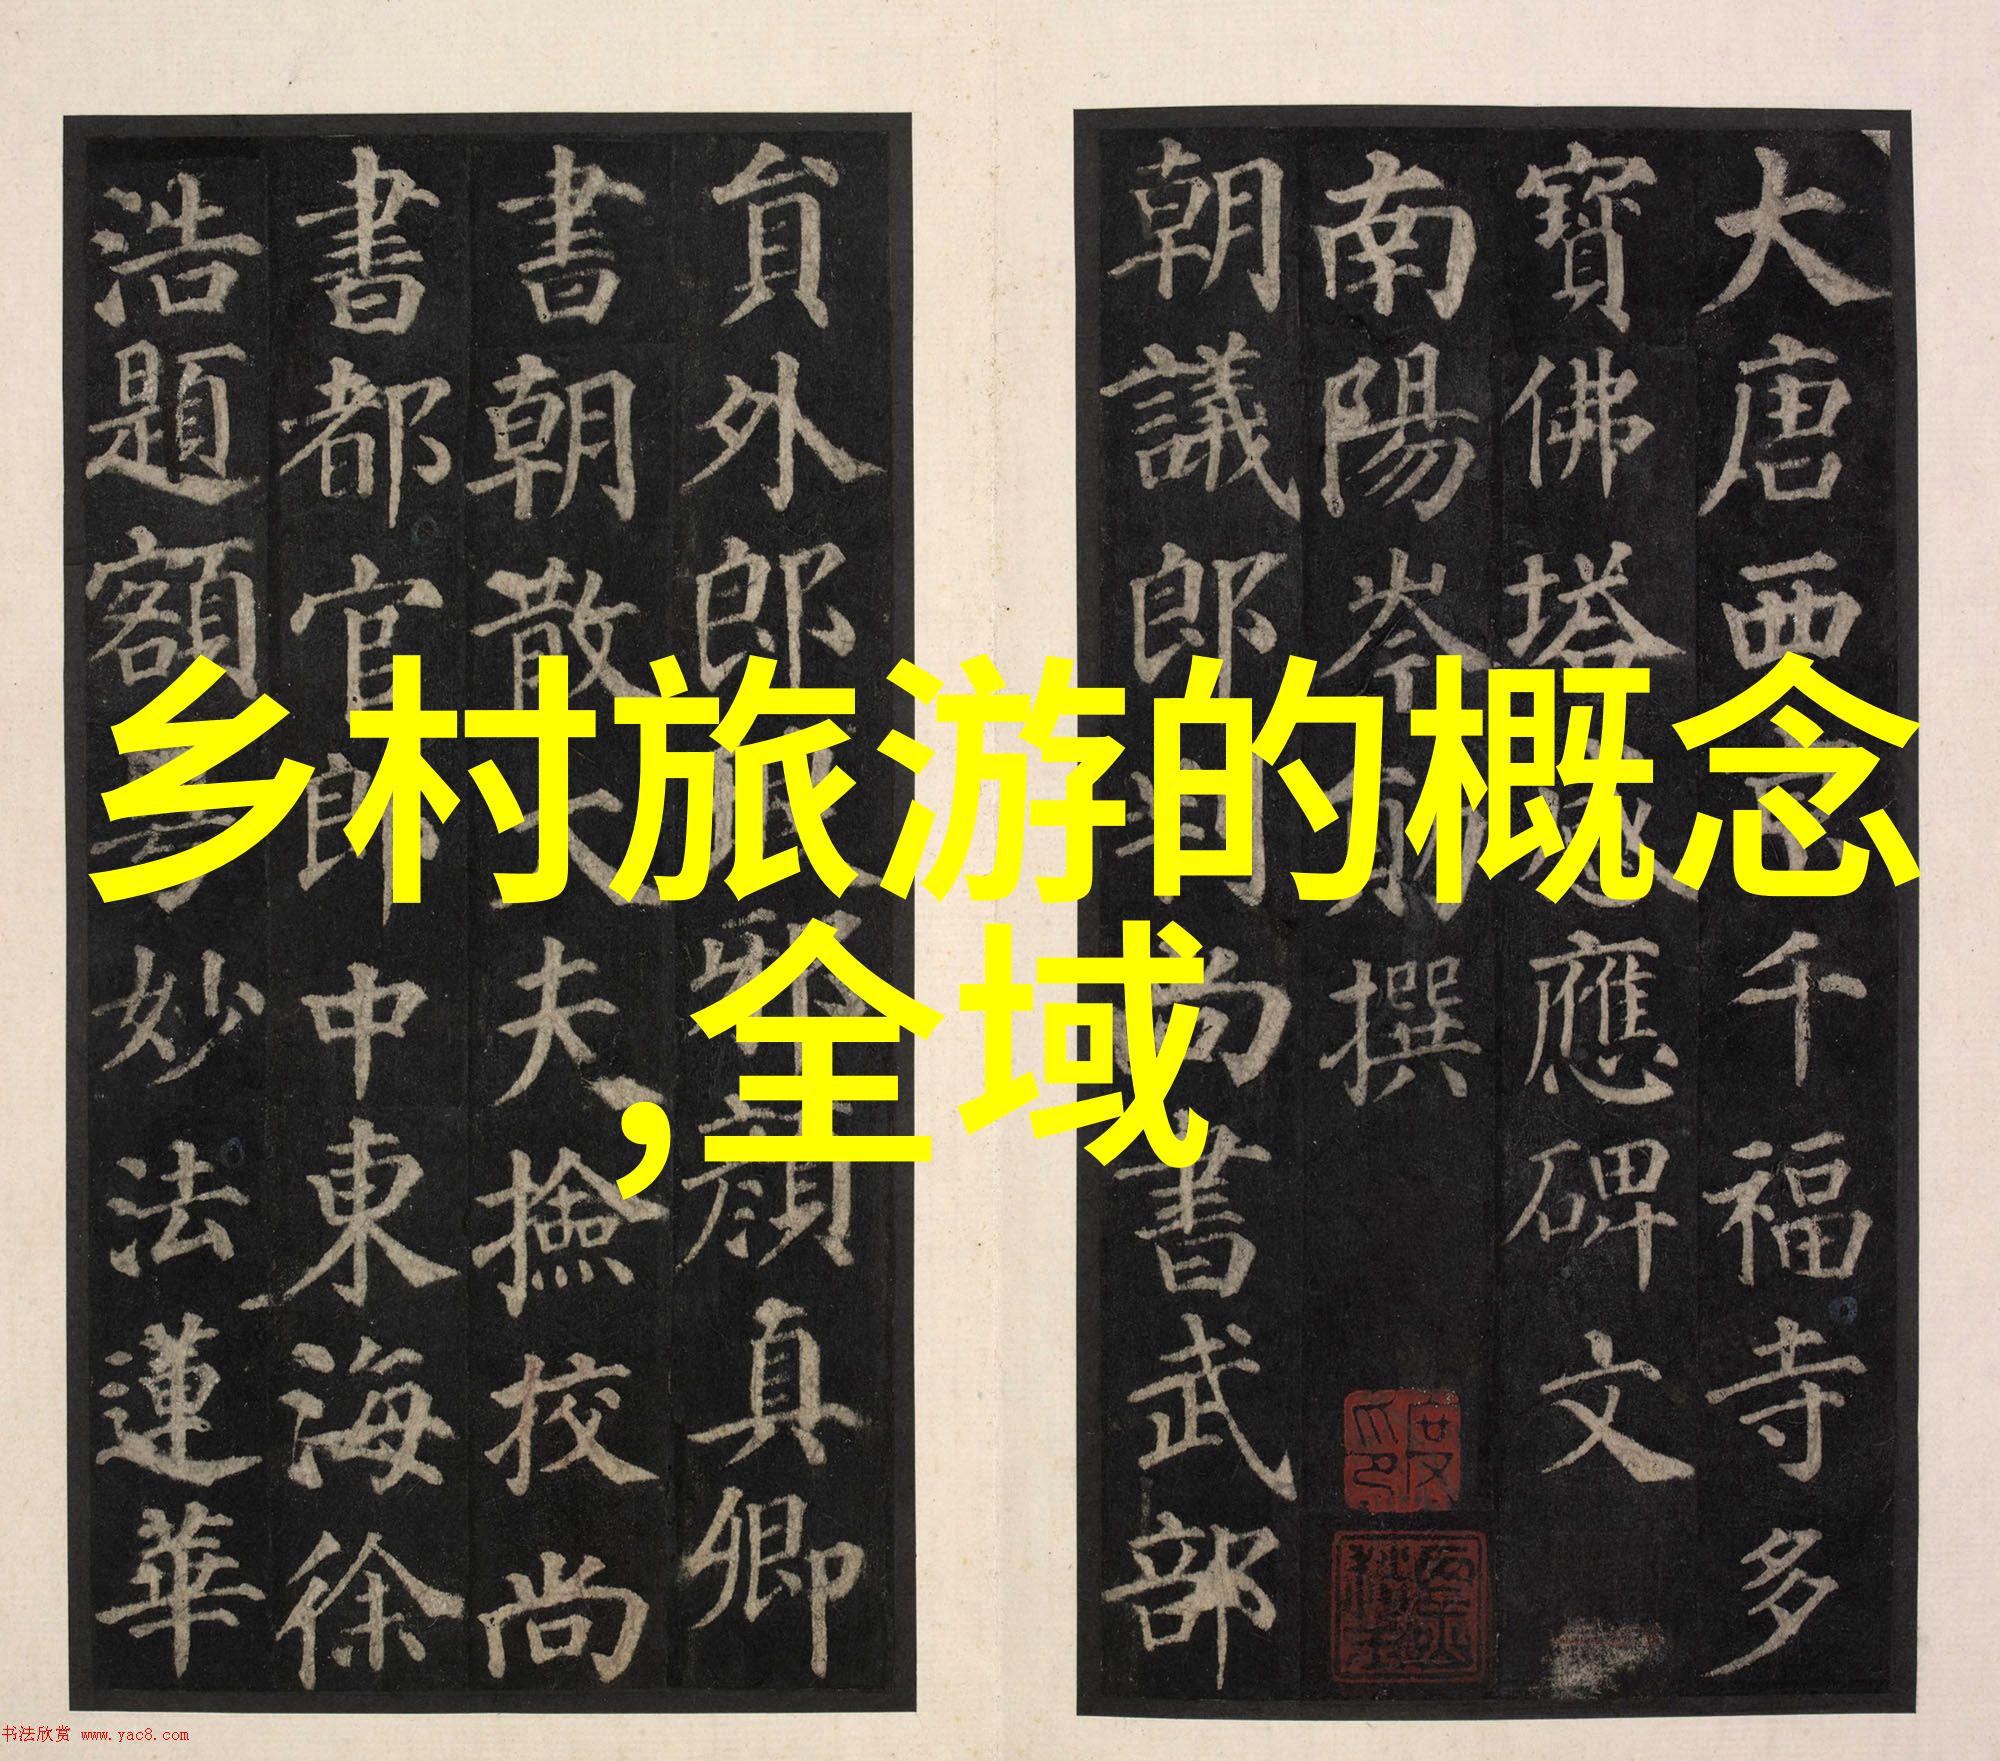 大唐西京千福寺多
寶佛塔感應碑文
南陽岑勛撰
朝議郎判尚書武部
貟外郎琅邪顏真卿
書朝散大夫撿校尚
書都官郎中東海徐
浩題額
妙法蓮華
乡村旅游的概念
,全域
书法欣赏 www.yac8.com